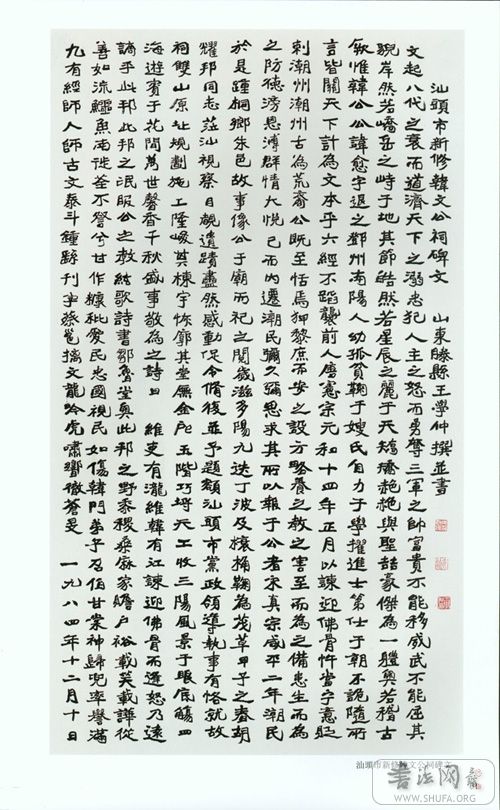 汕頭市新修韓文公祠碑文　山東滕縣王學仲撰並書
文起八代之衰而道濟天下之溺忠犯人主之怒而勇奪三軍之帥富貴不能移威武不能屈其
貌岸然若嶠岳之峙于地其節皓然若星辰之麗于天矯矯艴艴與聖喆豪傑為一體與若稽古
厥惟韓公公諱愈字退之鄧州南陽人幼孤貧鞠于嫂氏自力于學擢進士第仕于朝不詭隨所
言皆關天下計為文本乎六經不蹈襲前人唐憲宗元和十四年正月以諫迎佛骨忤當宁意貶
刺潮州潮州古為荒裔公既至恬焉狎黎庶而安之設方略養之教之害至而為之備患生而為
之防德滂恩溥群情大悦已而內遷潮民彌久彌思求其所以報于公者宋真宗咸平二年潮民
於是踵桐鄉朱邑故事像公于廟而祀之閱歲滋多陽九迭丁波及榱桷鞠為茂草甲子之春胡
耀邦同志蒞汕視察目覩遺蹟盡然感動促令脩復並予題額汕頭市黨政領導執事有恪就故
祠雙山原址規劃施工隆峻其棟宇恢廓其堂廡金戺玉階巧埒天工收三陽風景于眼底觴四
海遊賓于花間萬世馨香千秋盛事敬為之詩曰　維吏有瀧維韓有江諫迎佛骨而遭怒乃遠
謫乎此邦此邦之氓服公之教絃歌詩書鄒魯堂奧此邦之野黍稷桑麻家贍户裕載芟載譁從
善如流鱷魚南徙筌不謷兮甘作椽枇愛民忠國視民如傷韓門弟子召伯甘棠神歸兜率譽滿
九有經師人師古文泰斗鍾銘刊爭蔡邕摛文龍吟虎嘯響徹蒼旻　一九八四年十二月十日
汕頭市新修韓文公祠碑文
書法网
WWW.SHUFA.ORG